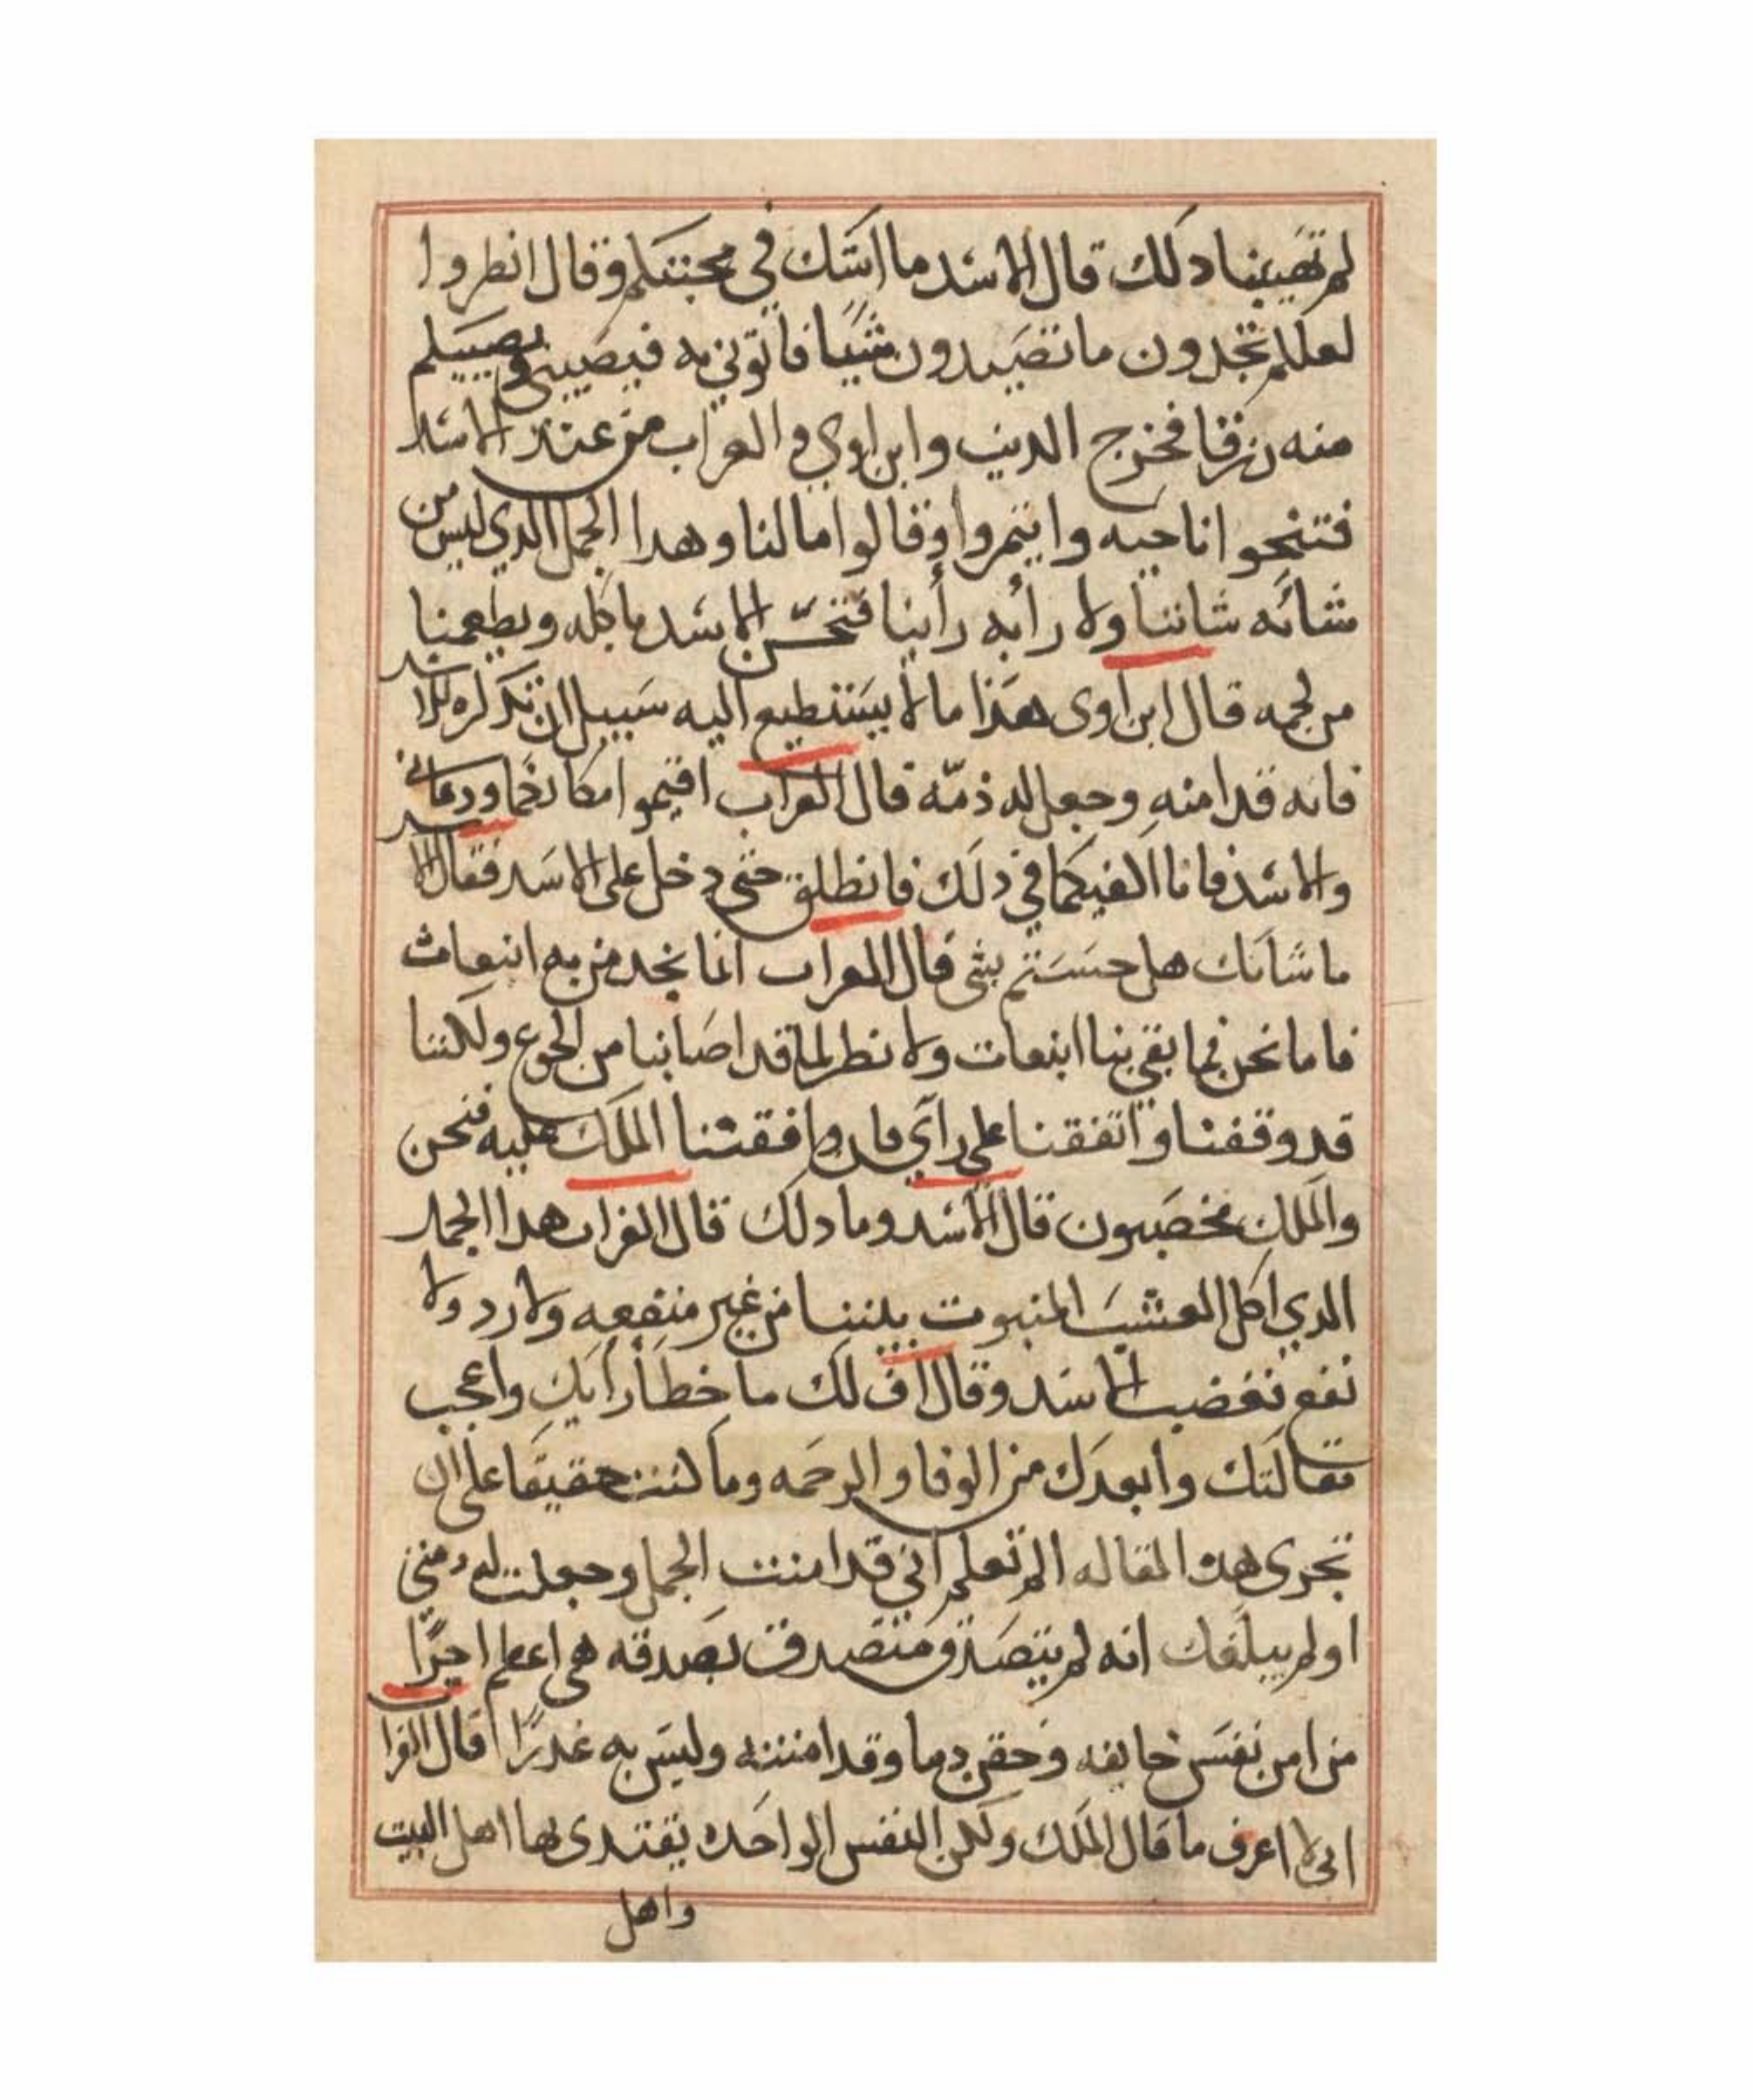 لم تهيبنا دلك قال الاسد ما اشك في محبتكم وقال انطروا
لعلكم تجدون ما تصيدون شيا فاتوني به فيصيبني ويصيبكم
منه رزقا فخرج الديب وابن اوي والغراب من عند الاسد
فتنحوا ناحيه وايتمروا وقالوا ما لنا وهدا الجمل الدي ليس من
شانه شاننا ولا رأيه رأينا الاسد ياكله ويطعمنا
من لحمه قال ابن اوى هذا ما لا يستطيع اليه سبيل ان تدكره للاسد
فانه قد امنه وجعل له ذمّه قال الغراب اقيموا مكانكما ودعاني
والاسد فانا اكفيكما في دلك فانطلق حتى دخل على الاسد فقال الاسد
ما شانك هل حسستم بشي قال الغراب انما نجد من به انبعاث
فاما نحن فما بقي بنا انبعات ولا نطر لما قد اصابنا من الجوع ولكننا
قد وقفنا واتفقنا على رآي فان وافقتنا الملك عليه فنحن
والملك مخصبون قال الاسد وما دلك قال الغراب هدا الجمل
الدي اكل العشب المنبوت بيننا من غير منفعه ولا رد ولا
نفع فغضب الاسد وقال اف لك ما خطأ رأيك واعجب
مقالتك وابعدك من الوفا والرحمه وما كنت حقيقا على ان
تجرى هده المقاله الم تعلم اني قد امنت الجمل وجعلت له دمتي
اولم يبلغك انه لم يتصدق متصدق بصدقه هي اعطم اجرًا
من امن نفس خايفه وحقن دما وقد امنته وليس به غدرًا قال الغرا
اني لا اعرف ما قال الملك ولكن النفس الواحده يفتدى بها اهل البيت
واهل